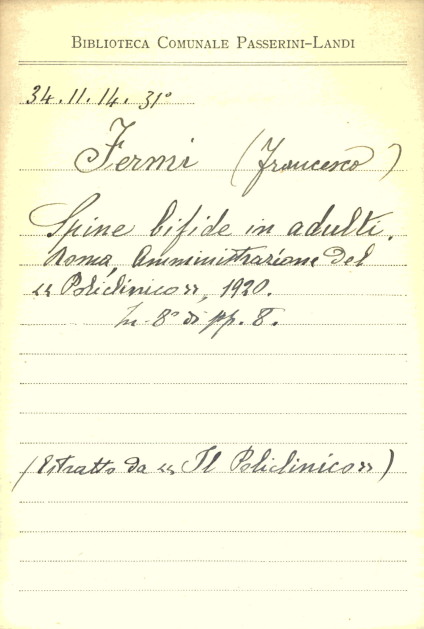 BIBLIOTECA COMUNALE PASSERINI-LANDI
34.11.14. 31°
Fermi (Francesco)
Spine bifide in adulti.
Roma, Amministrazione del
« Policlinico », 1920.
In-8° di pp. 8.
(Estratto da « Il Policlinico »)